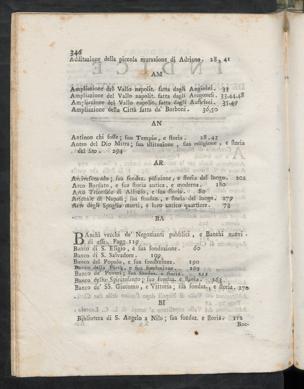 346
Additazione della piccola murazione di Adriano. 28, 41
AM
Ampliazione del Vallo napolit. fatta dagli Angioini. 33
Ampliazione del Vallo napolit. fatta dagli Aragonesi. 33.44.48
Ampliazione del Vallo napolit. fatta dagli Austriaci. 35.49
Ampliazione della Città fatta da' Borboni. 36.50
AN
Antinoo chi fosse; suo Tempio, e storia. 28.41
Antro del Dio Mitra; sua situazione, sua religione, e storia
del sito. 294
AR
sua fondaz. situazione, e storia del luogo. 202
Arco Boriato, e sua storia antica, e moderna. 180
Arco Trionfale di Alfonso, e sua storia. 80
Arsenale di Napoli, sua fondaz. e storia del luogo. 279
Arti degli Spaglia morti, e loro antico quartiere. 73
BA
BAnchi vecchi de' Negozianti pubblici, e Banchi nuovi
di essi. Pagg. 119
Banco di S. Eligio, e sua fondazione. 60
Banco di S. Salvadore. 109
Banco del Popolo, e sua fondazione. 190
Banco della Pietà, e sua fondazione. 189
Banco de' Poveri, sua fondaz. e storia.
Banco dello Spiritosanto; sua fondaz. e storia.
Banco de' SS. Giacomo, e Vittoria; sua fondaz. e storia. 270
BI
Biblioteca di S. Angelo a Nilo; sua fondaz. e storia. 112
Boc-